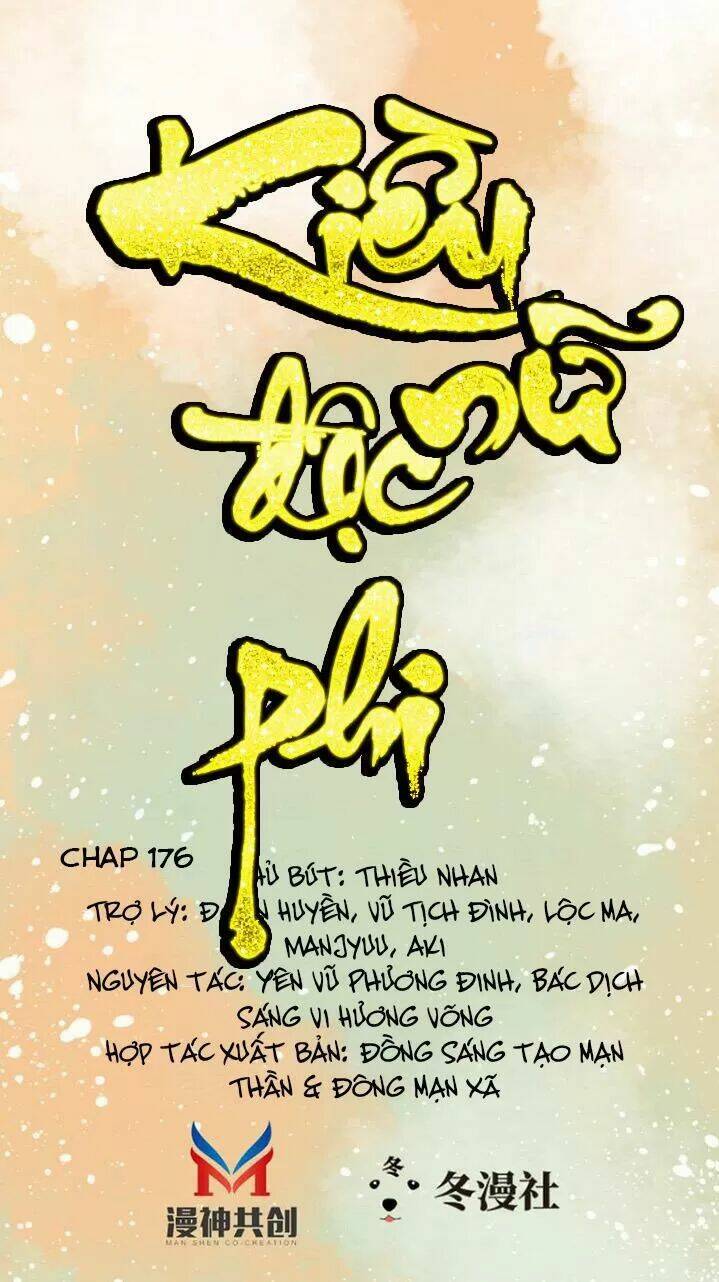 Kiều
nữ
độc
phi
CHAP 176
BÚT: THIỀU NHAN
TRỢ LÝ: HUYỀN, VŨ TỊCH ĐÌNH, LỘC MA,
MANJYUU, AKI
NGUYÊN TÁC: YÊN VŨ PHƯƠNG ĐINH, BẮC DỊCH
SÁNG VI HƯƠNG VÕNG
HỢP TÁC XUẤT BẢN: ĐỒNG SÁNG TẠO MẠN
THẦN & ĐÔNG MẠN XÃ
冬
漫神共创 冬漫社
MAN SHEN CO-CREATION